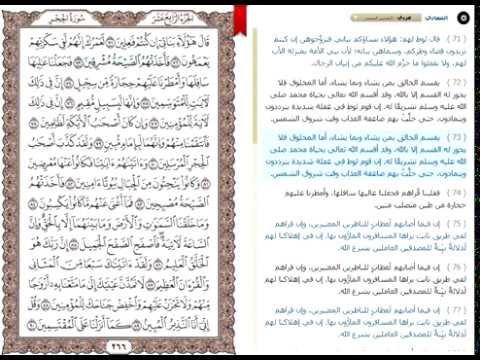 الجُزْءُ الرَّابِعَ عَشَرَ
سُورَةُ الحِجْرِ
قَالَ هَٰٓؤُلَآءِ بَنَاتِيٓ إِن كُنتُمْ فَٰعِلِينَ ٧١ لَعَمْرُكَ إِنَّهُمْ لَفِي سَكْرَتِهِمْ
يَعْمَهُونَ ٧٢ فَأَخَذَتْهُمُ ٱلصَّيْحَةُ مُشْرِقِينَ ٧٣ فَجَعَلْنَا عَٰلِيَهَا
سَافِلَهَا وَأَمْطَرْنَا عَلَيْهِمْ حِجَارَةً مِّن سِجِّيلٍ ٧٤ إِنَّ فِي ذَٰلِكَ
لَءَايَٰتٍ لِّلْمُتَوَسِّمِينَ ٧٥ وَإِنَّهَا لَبِسَبِيلٍ مُّقِيمٍ ٧٦ إِنَّ فِي ذَٰلِكَ
لَءَايَةً لِّلْمُؤْمِنِينَ ٧٧ وَإِن كَانَ أَصْحَٰبُ ٱلْأَيْكَةِ لَظَٰلِمِينَ ٧٨
فَٱنتَقَمْنَا مِنْهُمْ وَإِنَّهُمَا لَبِإِمَامٍ مُّبِينٍ ٧٩ وَلَقَدْ كَذَّبَ أَصْحَٰبُ
ٱلْحِجْرِ ٱلْمُرْسَلِينَ ٨٠ وَءَاتَيْنَٰهُمْ ءَايَٰتِنَا فَكَانُوا۟ عَنْهَا مُعْرِضِينَ
٨١ وَكَانُوا۟ يَنْحِتُونَ مِنَ ٱلْجِبَالِ بُيُوتًا ءَامِنِينَ ٨٢ فَأَخَذَتْهُمُ
ٱلصَّيْحَةُ مُصْبِحِينَ ٨٣ فَمَآ أَغْنَىٰ عَنْهُم مَّا كَانُوا۟ يَكْسِبُونَ ٨٤
وَمَا خَلَقْنَا ٱلسَّمَٰوَٰتِ وَٱلْأَرْضَ وَمَا بَيْنَهُمَآ إِلَّا بِٱلْحَقِّ وَإِنَّ
ٱلسَّاعَةَ لَءَاتِيَةٌ فَٱصْفَحِ ٱلصَّفْحَ ٱلْجَمِيلَ ٨٥ إِنَّ رَبَّكَ هُوَ
ٱلْخَلَّٰقُ ٱلْعَلِيمُ ٨٦ وَلَقَدْ ءَاتَيْنَٰكَ سَبْعًا مِّنَ ٱلْمَثَانِي
وَٱلْقُرْءَانَ ٱلْعَظِيمَ ٨٧ لَا تَمُدَّنَّ عَيْنَيْكَ إِلَىٰ مَا مَتَّعْنَا بِهِۦٓ أَزْوَٰجًا
مِّنْهُمْ وَلَا تَحْزَنْ عَلَيْهِمْ وَٱخْفِضْ جَنَاحَكَ لِلْمُؤْمِنِينَ ٨٨ وَقُلْ
إِنِّيٓ أَنَا ٱلنَّذِيرُ ٱلْمُبِينُ ٨٩ كَمَآ أَنزَلْنَا عَلَى ٱلْمُقْتَسِمِينَ ٩٠
٢٦٦
(71) قال لوط لهم: هؤلاء نساؤكم بناتي فتزوَّجوهن إن كنتم
تريدون قضاء وطركم، وسماهن بناته؛ لأن نبي الأمة بمنزلة الأب
لهم، ولا تفعلوا ما حرَّم الله عليكم من إتيان الرجال.
(72) يقسم الخالق بمن يشاء وبما يشاء، أما المخلوق فلا
يجوز له القسم إلا بالله، وقد أقسم الله تعالى بحياة محمد صلى
الله عليه وسلم تشريفًا له. إن قوم لوط في غفلة شديدة يترددون
ويتمادون، حتى حلَّتْ بهم صاعقة العذاب وقت شروق الشمس.
(73) يقسم الخالق بمن يشاء وبما يشاء، أما المخلوق فلا
يجوز له القسم إلا بالله، وقد أقسم الله تعالى بحياة محمد صلى
الله عليه وسلم تشريفًا له. إن قوم لوط في غفلة شديدة يترددون
ويتمادون، حتى حلَّتْ بهم صاعقة العذاب وقت شروق الشمس.
(74) فقلبنا قراهم فجعلنا عاليها سافلها، وأمطرنا عليهم
حجارة من طين متصلب متين.
(75) إن فيما أصابهم لعظاتٍ للناظرين المعتبرين، وإن قراهم
لفي طريق ثابت يراها المسافرون المارُّون بها. إن في إهلاكنا لهم
لدلالةً بيِّنةً للمصدقين العاملين بشرع الله.
(76) إن فيما أصابهم لعظاتٍ للناظرين المعتبرين، وإن قراهم
لفي طريق ثابت يراها المسافرون المارُّون بها. إن في إهلاكنا لهم
لدلالةً بيِّنةً للمصدقين العاملين بشرع الله.
(77) إن فيما أصابهم لعظاتٍ للناظرين المعتبرين، وإن قراهم
لفي طريق ثابت يراها المسافرون المارُّون بها. إن في إهلاكنا لهم
لدلالةً بيِّنةً للمصدقين العاملين بشرع الله.